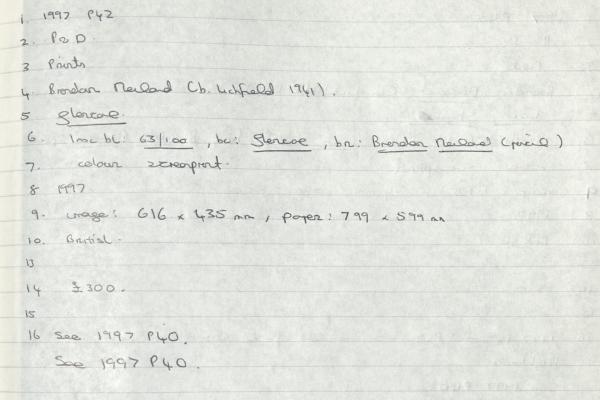 1. 1997 P42
2. P&D.
3 Prints
4. Brendan Neiland (b. Lichfield 1941).
5 Glencoe.
6. Insc bl: 63/100, bc: Glencoe, br: Brendan Neiland (pencil)
7. colour screenprint.
8 1997
9. image: 616 x 435 mm, paper: 799 x 599 mm
10. British.
13
14 £300.
15
16 See 1997 P40.
See 1997 P40.